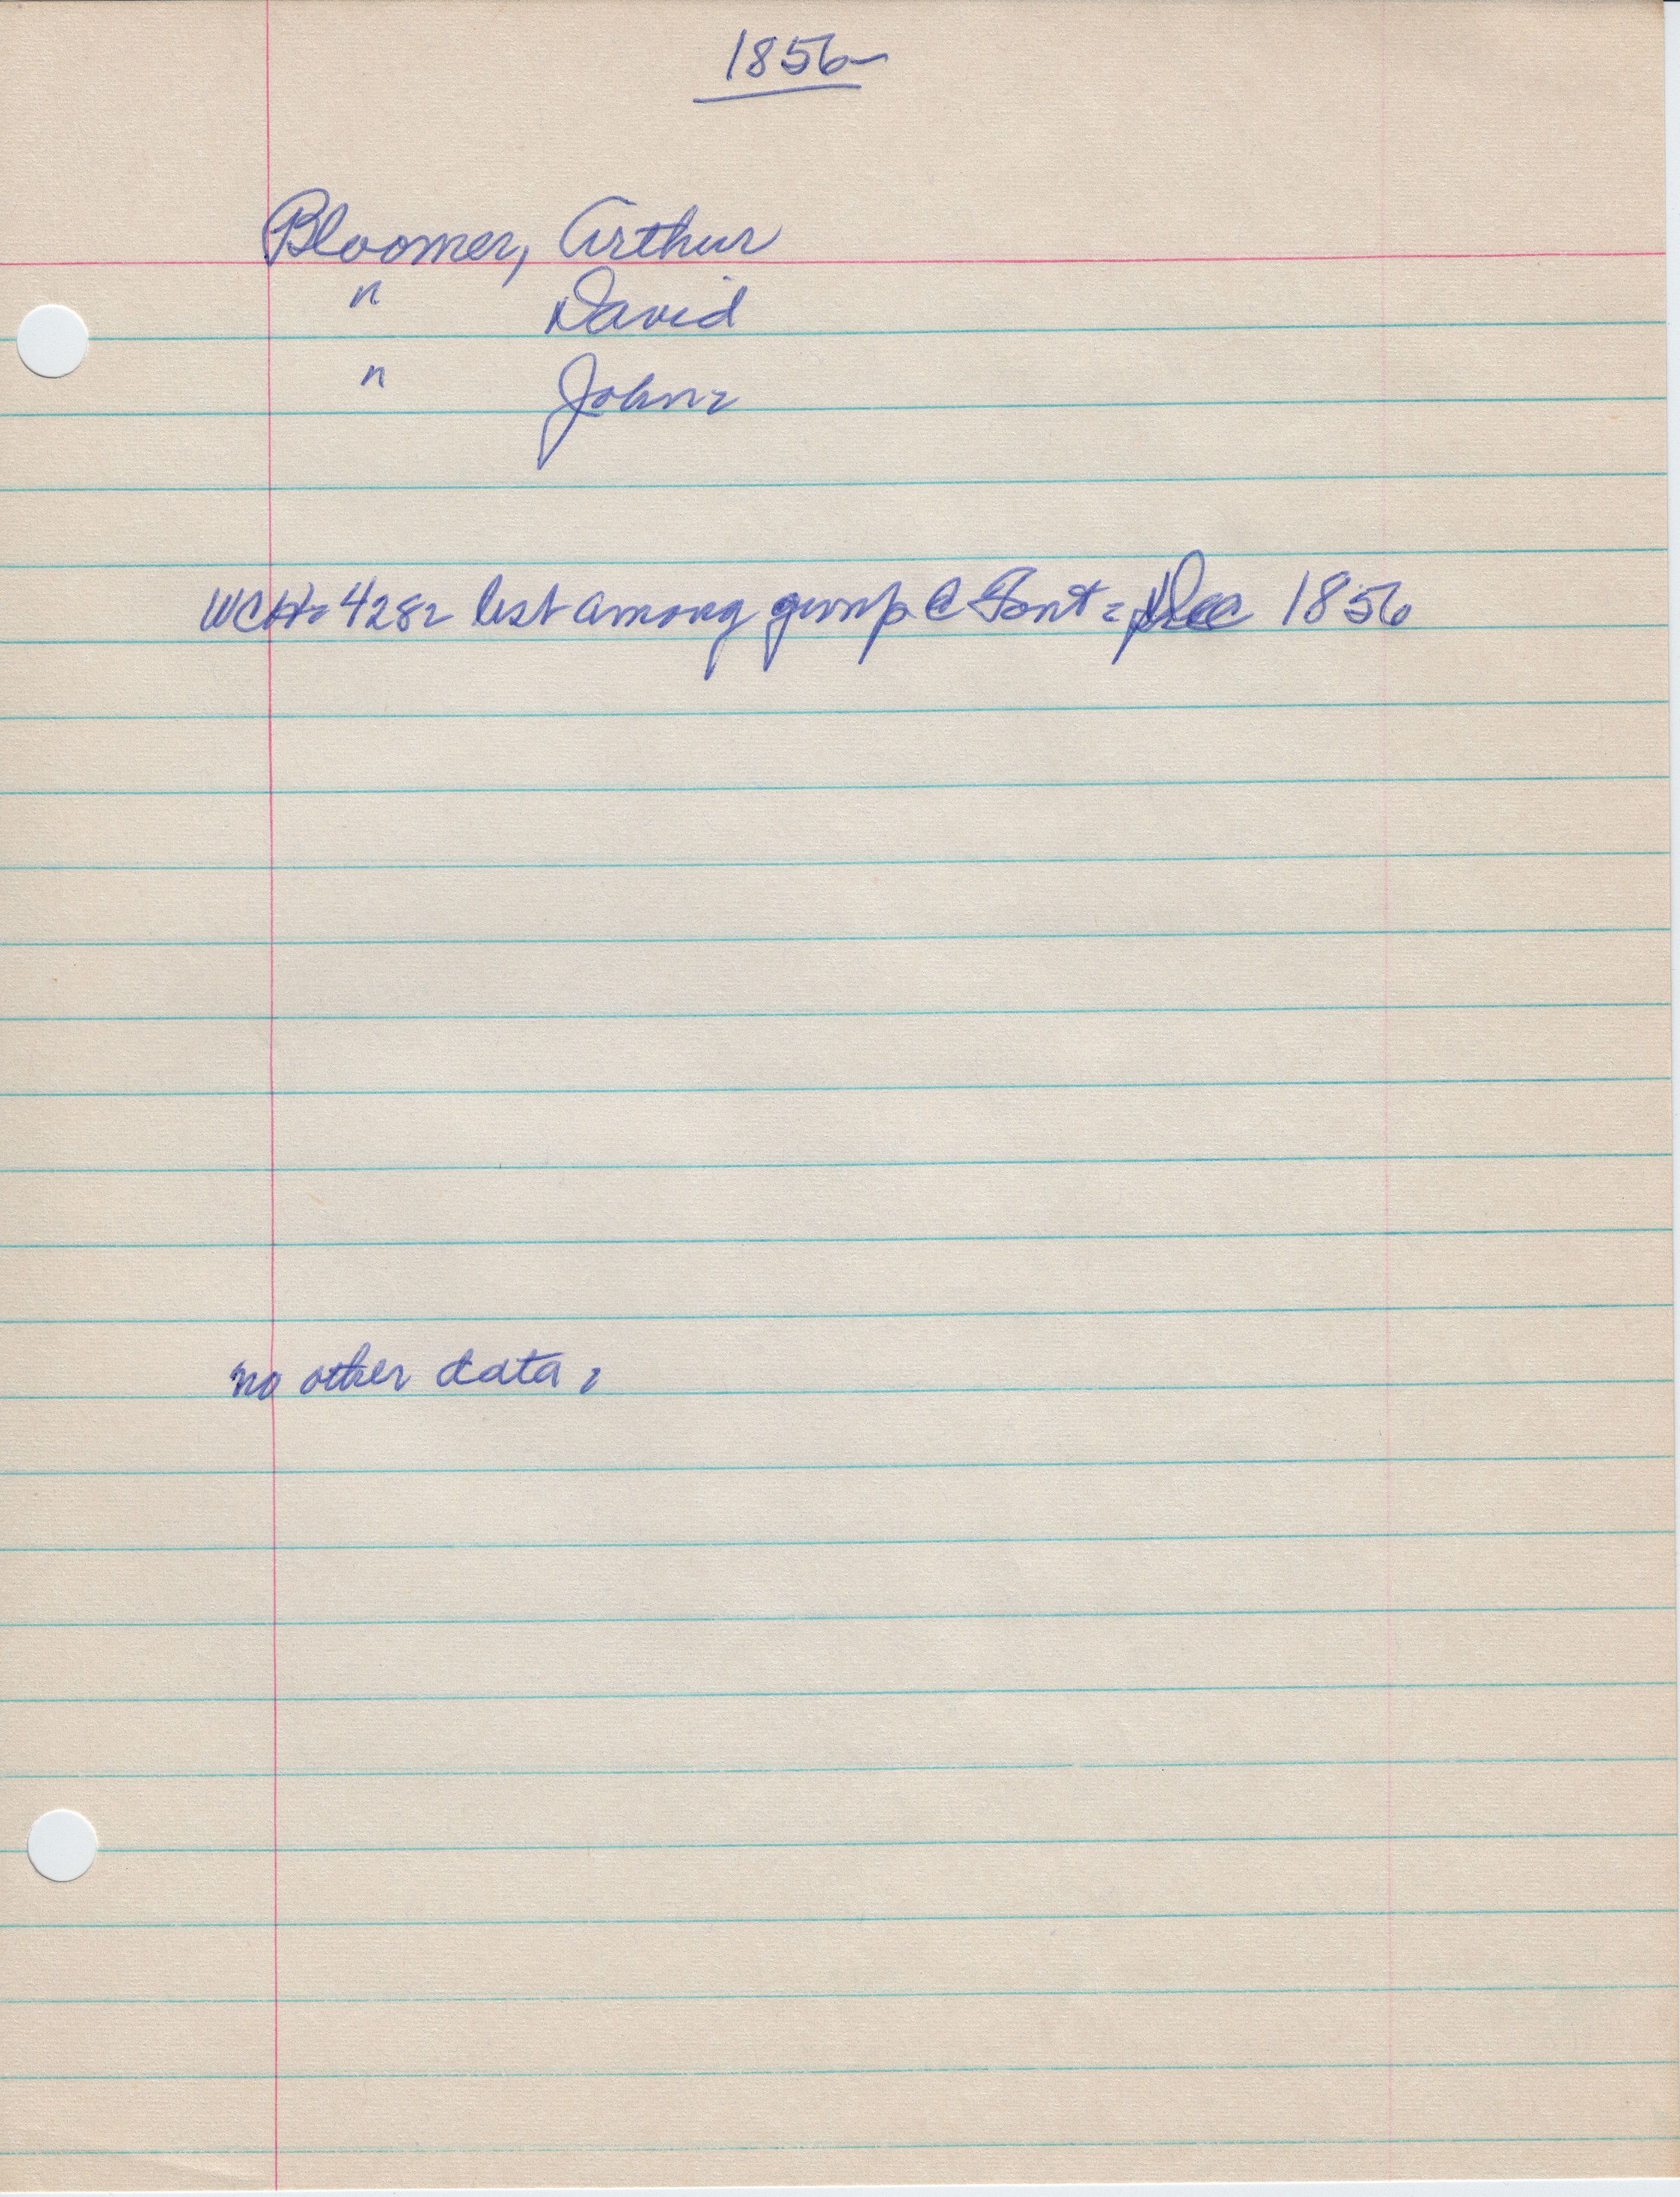 1856
Bloomer, Arthur
" David
" John
WCHo 4282 list among group @ Font = Dec 1856
no other data,